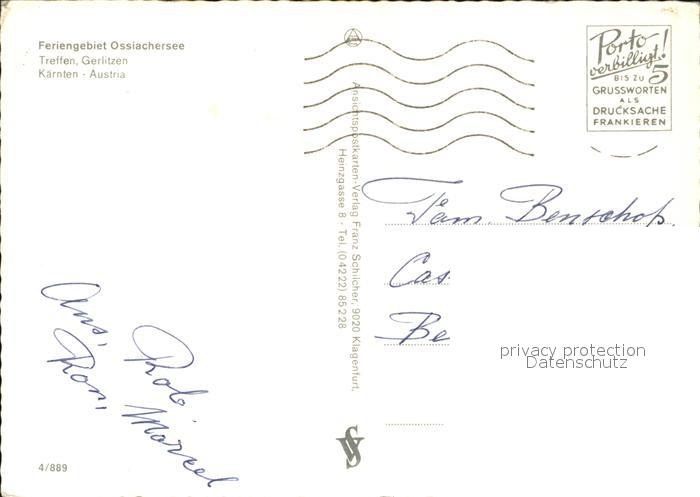 Feriengebiet Ossiachersee
Treffen, Gerlitzen
Kärnten - Austria
Porto
verbilligt!
BIS ZU 5
GRUSSWORTEN
ALS
DRUCKSACHE
FRANKIEREN
Ansichtspostkarten-Verlag Franz Schilcher, 9020 Klagenfurt,
Heinzgasse 8 · Tel. (04222) 85228
Fam. Benschop.
Cas
Be
Ans,
Ron,
Rob.
Marcel
privacy protection
Datenschutz
4/889